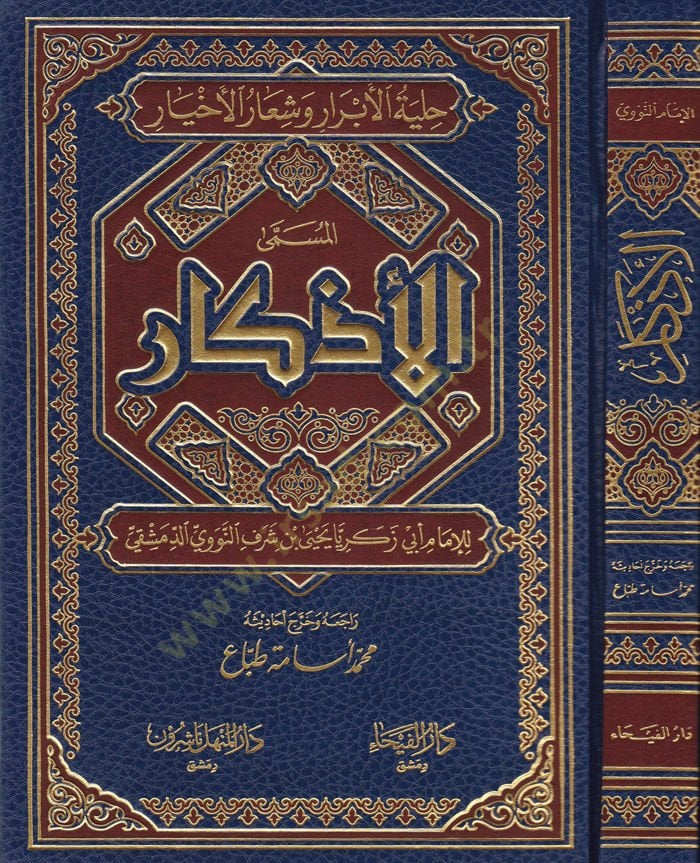 حلية الأبرار وشعار الأخيار
المسمى
الأذكار
للإمام أبي زكريا يحيى بن شرف النووي الدمشقي
راجعه وخرج أحاديثه
محمد أسامة طباع
دار الفيحاء
دمشق
دار المنهل ناشرون
دمشق
الإمام النووي
الأذكار
راجعه وخرج أحاديثه
محمد أسامة طباع
دار الفيحاء